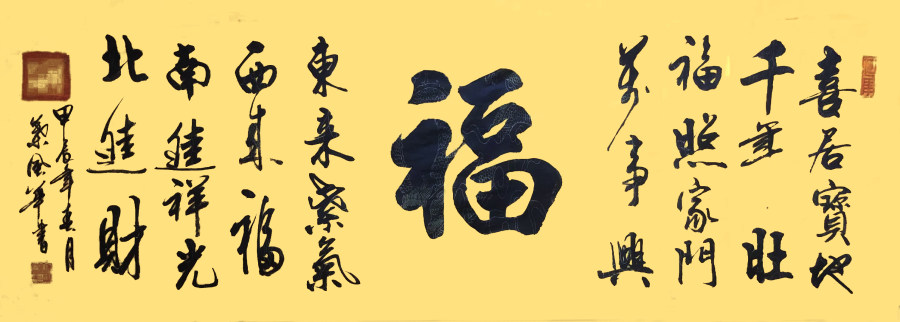 喜居寶地
千年旺
福照家門
萬事興
福
東来紫氣
西来福
南進祥光
北進財
甲辰年春月